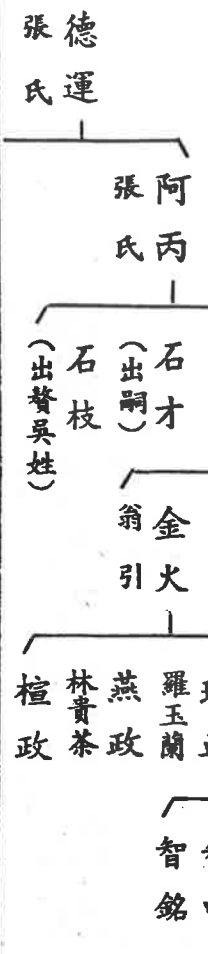 德運
張氏
阿丙
張氏
石才
（出嗣）
石枝
（出贅吳姓）
金火
翁引
羅玉蘭
燕政
林貴茶
楦政
智銘